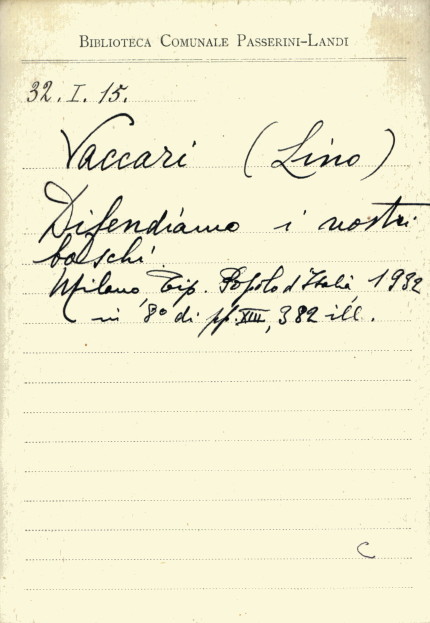 BIBLIOTECA COMUNALE PASSERINI-LANDI
32. I. 15.
Vaccari (Lino)
Difendiamo i nostri
boschi.
Milano, Tip. Popolo d'Italia, 1932
in 8° di pp. XIII, 382 ill.
C